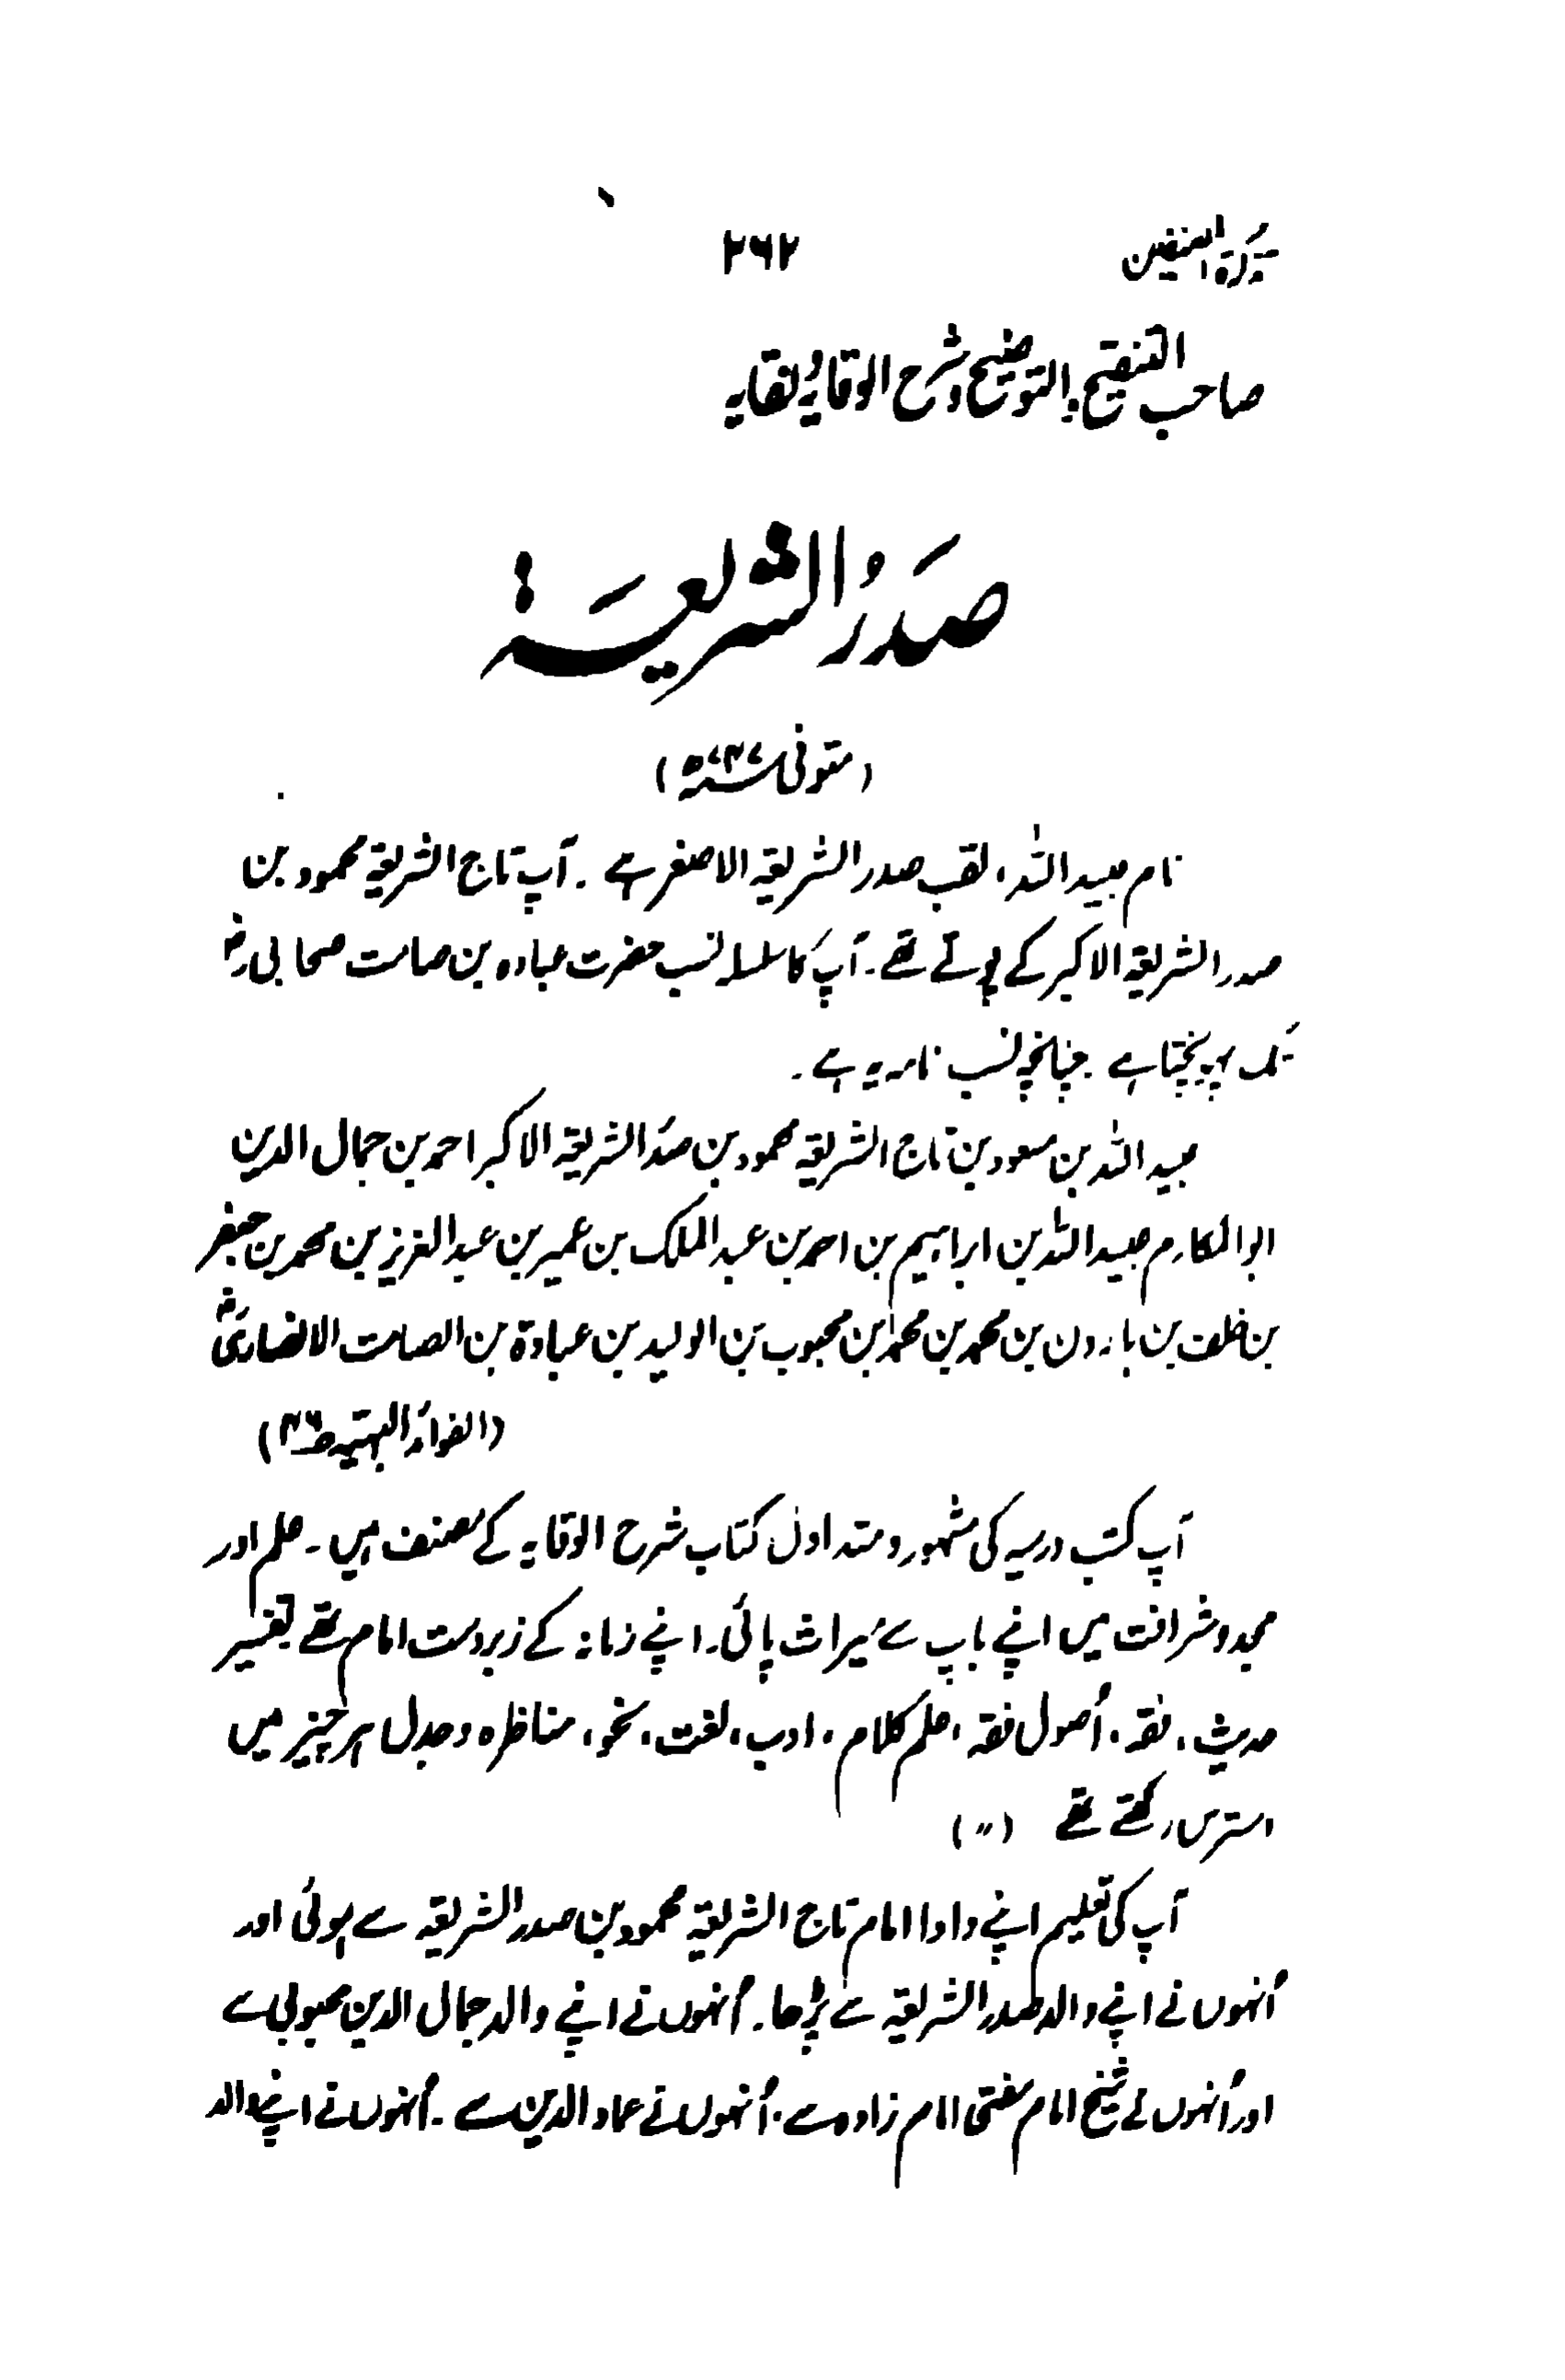 تذکرۃ المصنفین ۲۶۲
صاحب التنقیح والتوضیح و شرح الوقایہ و نقایہ
صَدرُ الشریعَۃ
(متوفی ۷۴۷ھ)
نام عبید اللہ، لقب صدر الشریعۃ الاصغر ہے ۔ آپ تاج الشریعۃ محمود بن
صدر الشریعۃ الاکبر کے پوتے تھے ۔ آپ کا سلسلہ نسب حضرت عبادہ بن صامت صحابی رضؓ
تک پہونچتا ہے چنانچہ نسب نامہ یہ ہے ۔
عبید اللہ بن مسعود بن تاج الشریعۃ محمود بن صدر الشریعۃ الاکبر احمد بن جمال الدین
ابو المکارم عبید اللہ بن ابراہیم بن احمد بن عبد الملک بن عمیر بن عبد العزیز بن محمد بن جعفر
بن خلف بن ہارون بن محمد بن محمد بن محبوب بن الولید بن عبادۃ بن الصامت الانصاریؓ
(الفوائد البہیہ ص۴۶)
آپ کتب درسیہ کی مشہور و متداول کتاب شرح الوقایہ کے مصنف ہیں ۔ علم اور
مجد و شرافت میں اپنے باپ سے میراث پائی ۔ اپنے زمانہ کے زبردست امام تھے تفسیر
حدیث، فقہ، اُصول فقہ، علم کلام، ادب، لغت، نحو، مناظرہ و جدل ہر چیز میں
دسترس رکھتے تھے (〃)
آپ کی تعلیم اپنے دادا امام تاج الشریعۃ محمود بن صدر الشریعۃ سے ہوئی اور
اُنہوں نے اپنے والد صدر الشریعۃ سے پڑھا ۔ اُنہوں نے اپنے والد جمال الدین محبوبی سے
اور اُنہوں نے شیخ امام مفتی امام زادہ سے ، اُنہوں نے عماد الدین سے ۔ اُنہوں نے اپنے والد